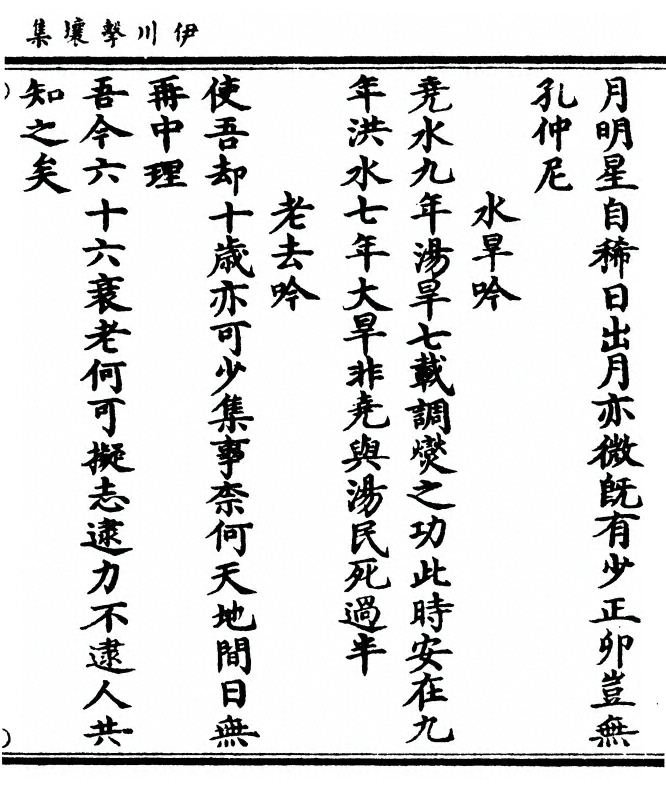 伊川擊壤集
月明星自稀日出月亦微既有少正卯豈無
孔仲尼
水旱吟
堯水九年湯旱七載調燮之功此時安在九
年洪水七年大旱非堯與湯民死過半
老去吟
使吾却十歲亦可少集事柰何天地間日無
再中理
吾今六十六衰老何可擬志逮力不逮人共
知之矣